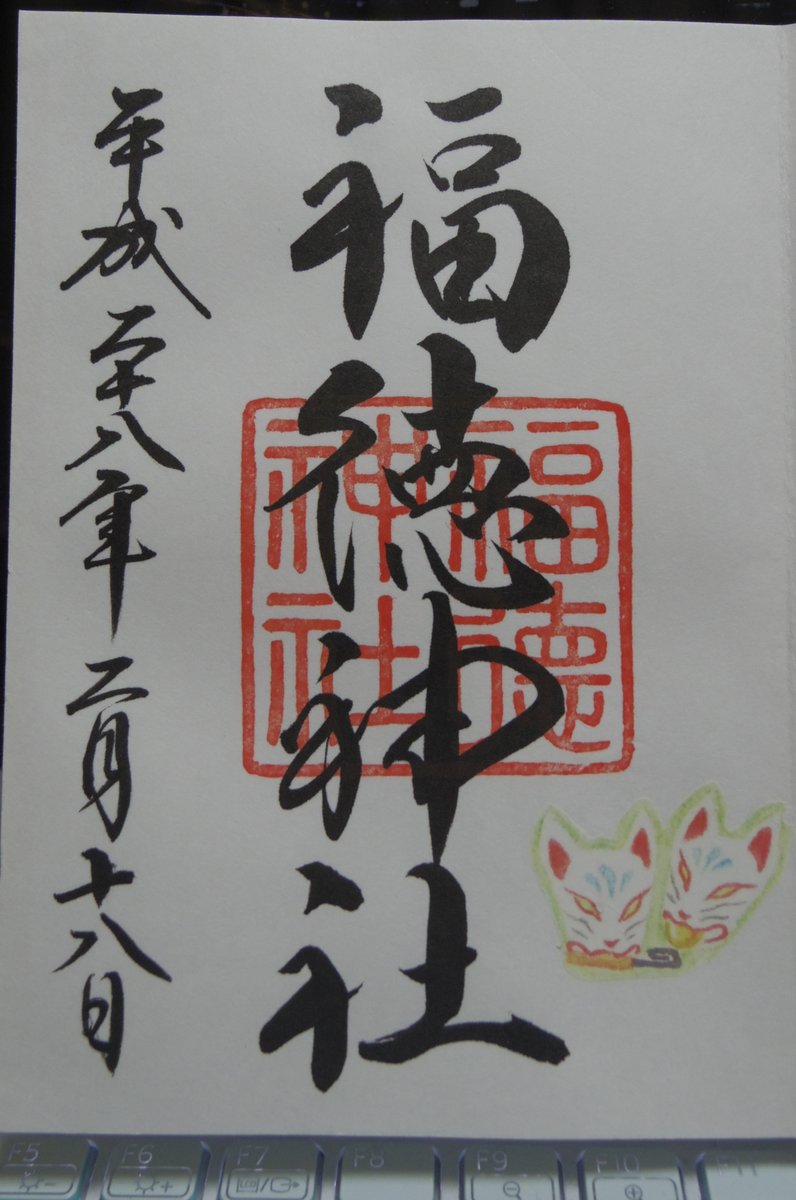 福徳神社
福徳
神社
平成二十八年二月十八日
F5
F6
F7
F8
F9
F10
F11